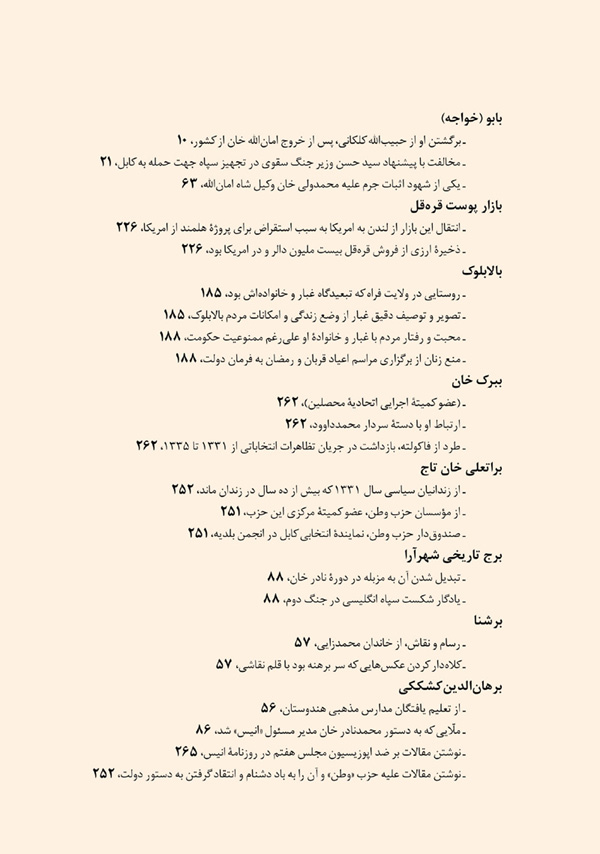 بابو (خواجه)
ـ برگشتن او از حبیب‌الله کلکانی، پس از خروج امان‌الله خان از کشور، ۱۰
ـ مخالفت با پیشنهاد سید حسن وزیر جنگ سقوی در تجهیز سپاه جهت حمله به کابل، ۲۱
ـ یکی از شهود اثبات جرم علیه محمدولی خان وکیل شاه امان‌الله، ۶۳
بازار پوست قره‌قل
ـ انتقال این بازار از لندن به امریکا به سبب استقراض برای پروژهٔ هلمند از امریکا، ۲۲۶
ـ ذخیرهٔ ارزی از فروش قره‌قل بیست ملیون دالر و در امریکا بود، ۲۲۶
بالابلوک
ـ روستایی در ولایت فراه که تبعیدگاه غبار و خانواده‌اش بود، ۱۸۵
ـ تصویر و توصیف دقیق غبار از وضع زندگی و امکانات مردم بالابلوک، ۱۸۵
ـ محبت و رفتار مردم با غبار و خانوادهٔ او علی‌رغم ممنوعیت حکومت، ۱۸۸
ـ منع زنان از برگزاری مراسم اعیاد قربان و رمضان به فرمان دولت، ۱۸۸
ببرک خان
ـ (عضو کمیتهٔ اجرایی اتحادیهٔ محصلین)، ۲۶۲
ـ ارتباط او با دستهٔ سردار محمدداوود، ۲۶۲
ـ طرد از فاکولته، بازداشت در جریان تظاهرات انتخاباتی از ۱۳۳۱ تا ۱۳۳۵، ۲۶۲
براتعلی خان تاج
ـ از زندانیان سیاسی سال ۱۳۳۱ که بیش از ده سال در زندان ماند، ۲۵۲
ـ از مؤسسان حزب وطن، عضو کمیتهٔ مرکزی این حزب، ۲۵۱
ـ صندوق‌دار حزب وطن، نمایندهٔ انتخابی کابل در انجمن بلدیه، ۲۵۱
برج تاریخی شهرآرا
ـ تبدیل شدن آن به مزبله در دورهٔ نادر خان، ۸۸
ـ یادگار شکست سپاه انگلیسی در جنگ دوم، ۸۸
برشنا
ـ رسام و نقاش، از خاندان محمدزایی، ۵۷
ـ کلاه‌دار کردن عکس‌هایی که سر برهنه بود با قلم نقاشی، ۵۷
برهان‌الدین کشککی
ـ از تعلیم یافتگان مدارس مذهبی هندوستان، ۵۶
ـ ملّایی که به دستور محمدنادر خان مدیر مسئول «انیس» شد، ۸۶
ـ نوشتن مقالات بر ضد اپوزیسیون مجلس هفتم در روزنامهٔ انیس، ۲۶۵
ـ نوشتن مقالات علیه حزب «وطن» و آن را به باد دشنام و انتقاد گرفتن به دستور دولت، ۲۵۲